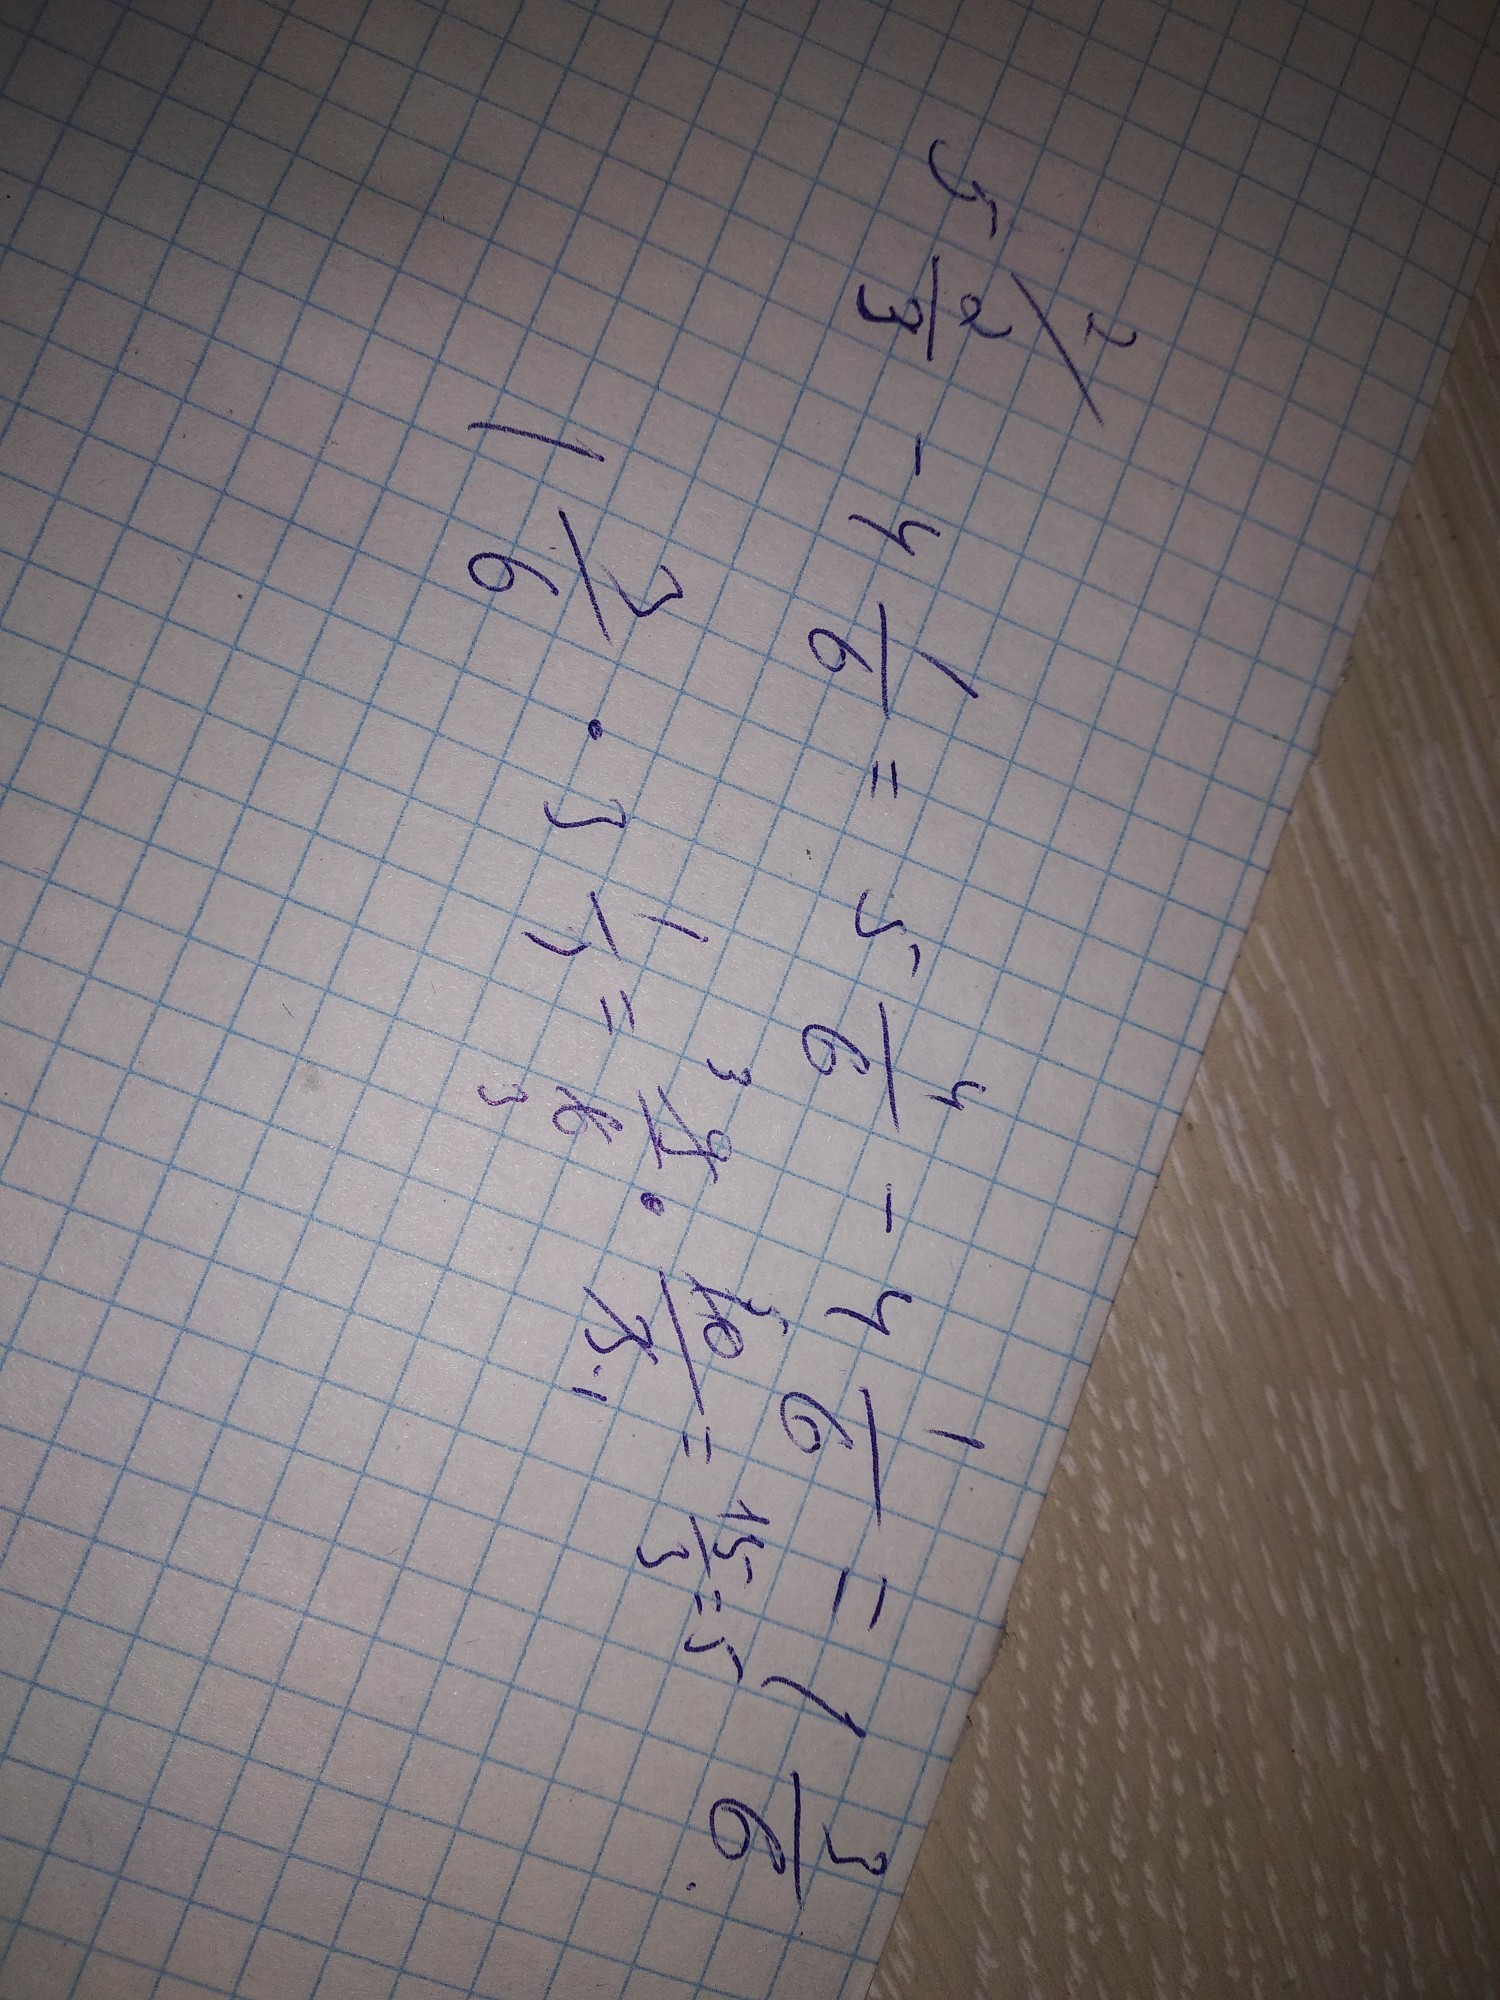 5 2/3 \ 2 - 4 1/6 = 5 4/6 - 4 1/6 = 1 3/6
1 3/6 · 3 1/3 = 9 3/6 3 · 10 5/3 1 = 15/3 = 5